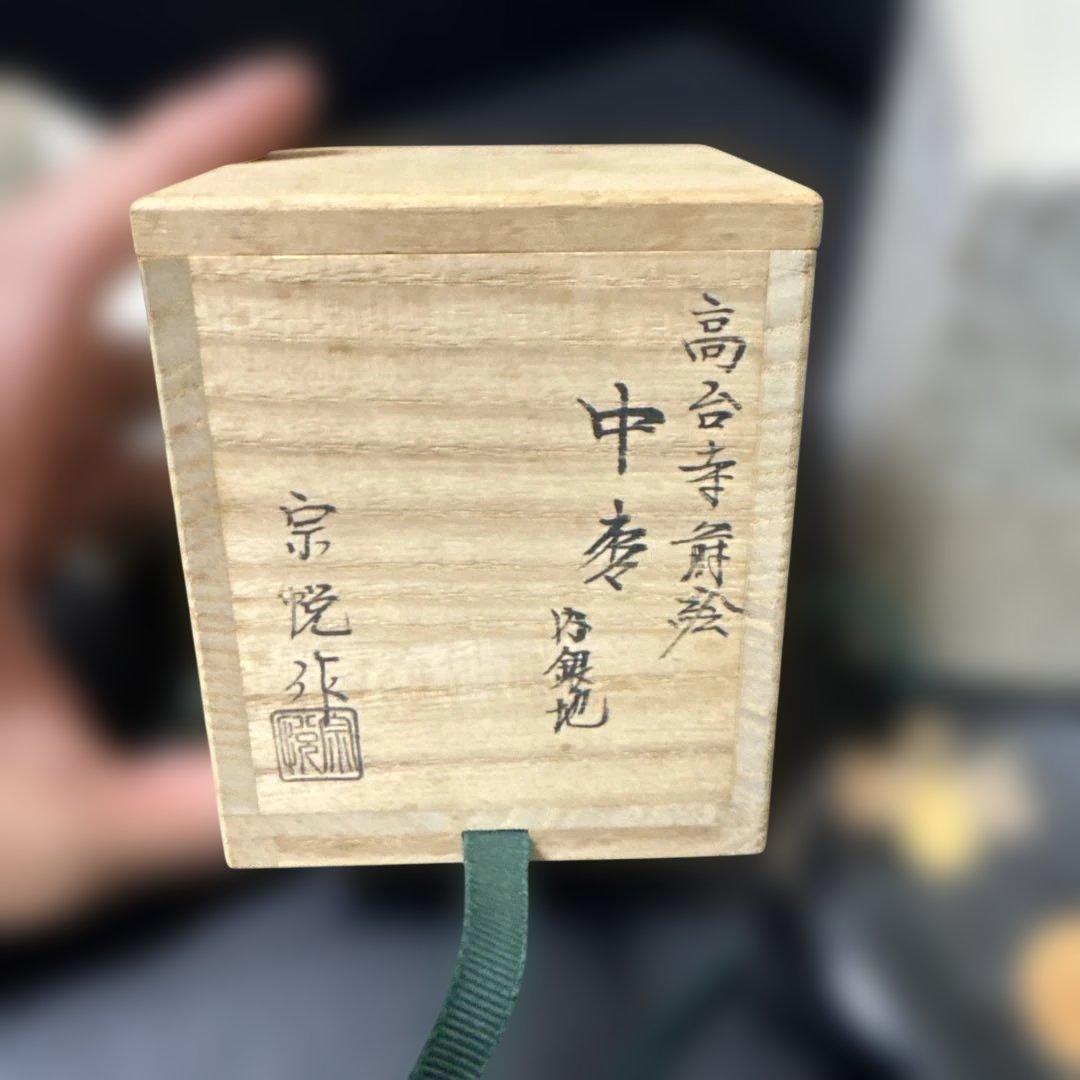 高台寺蒔絵
中棗
内銀地
宗悦作
宗悦